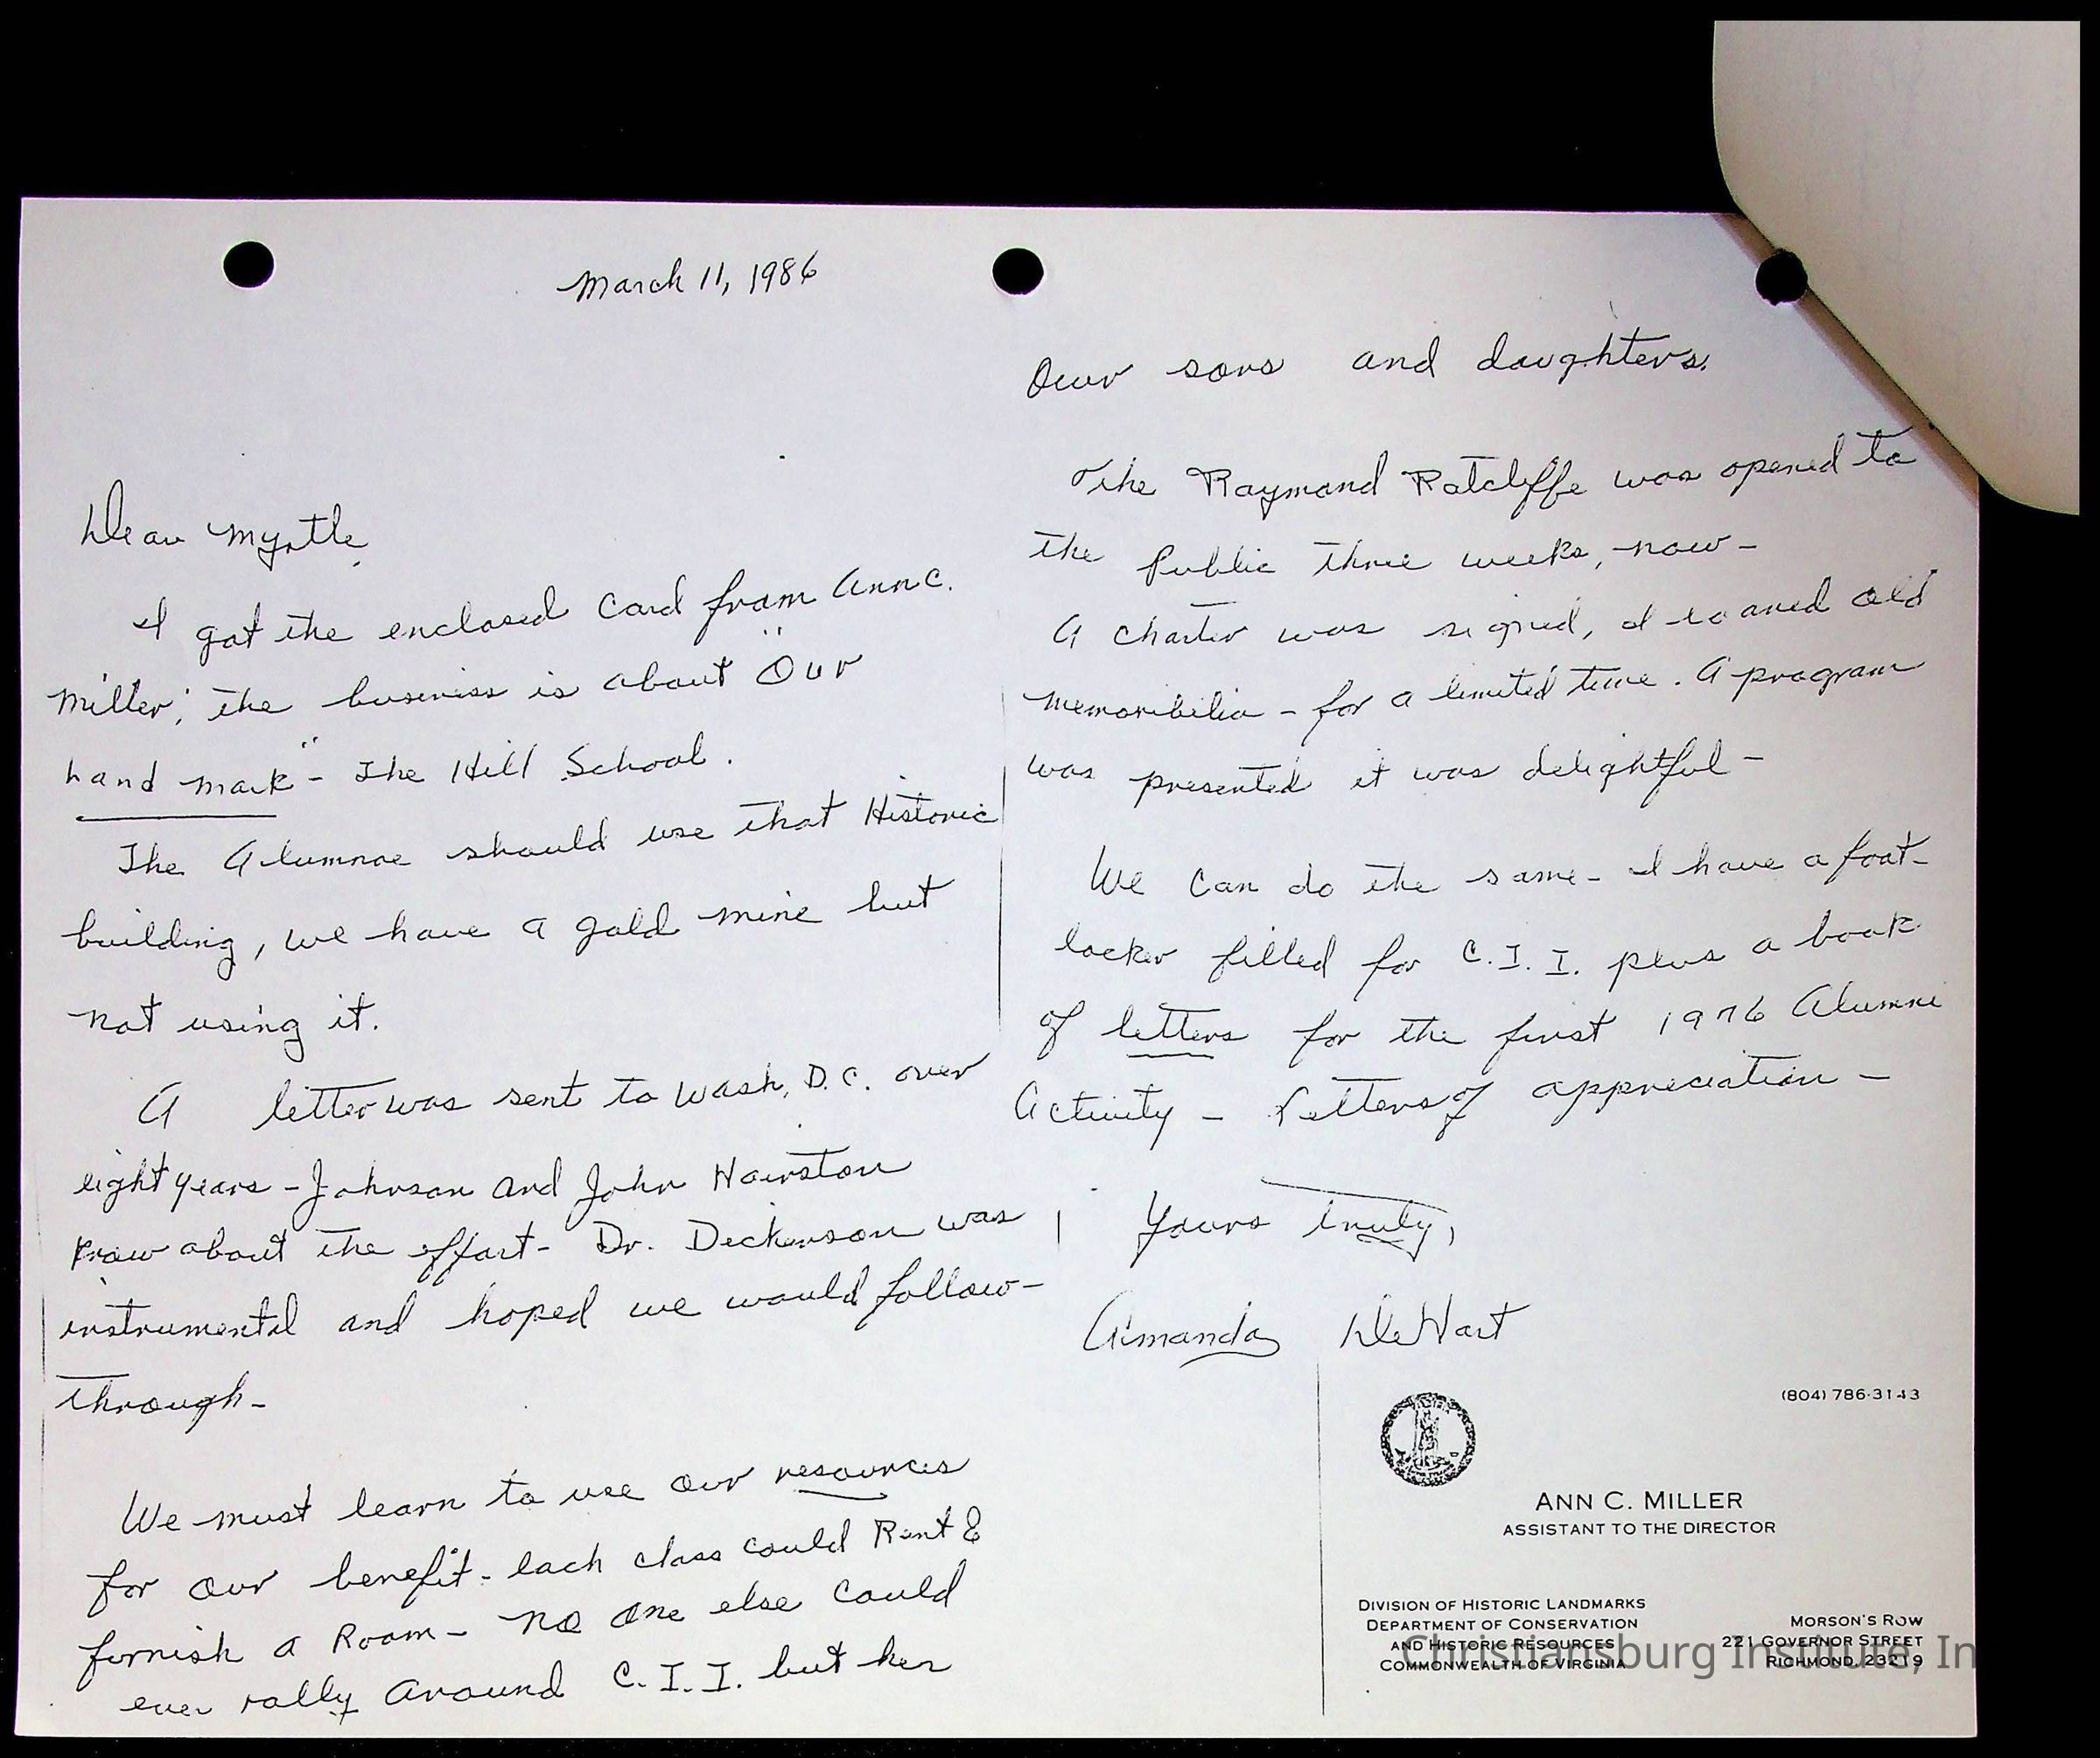 March 11, 1986
Dear Myrtle,
I got the enclosed card from Ann C.
Miller; the business is about "Our
hand mark" - The Hill School.
The Alumnae should use that Historic
building, we have a gold mine but
not using it.
A letter was sent to Wash, D.C. over
eight years - Johnson and John Hairston
know about the effort - Dr. Dickerson was
instrumental and hoped we would follow-
through-
We must learn to use our resources
for our benefit - Each class could Rent &
furnish a Room - no one else could
ever rally around C.I.I. but her
Our sons and daughters.
The Raymond Ratcliffe was opened to
the Public three weeks, now -
A charter was signed, I loaned old
memoribilia - for a limited time. A program
was presented it was delightful -
We can do the same - I have a foot-
locker filled for C.I.I. plus a book
of letters for the first 1976 Alumni
Activity - Letters of appreciation -
Yours truly,
Amanda DeHart
(804) 786-3143
ANN C. MILLER
ASSISTANT TO THE DIRECTOR
DIVISION OF HISTORIC LANDMARKS
DEPARTMENT OF CONSERVATION
AND HISTORIC RESOURCES
COMMONWEALTH OF VIRGINIA
MORSON'S ROW
221 GOVERNOR STREET
RICHMOND, 23219
Christiansburg Institute, In